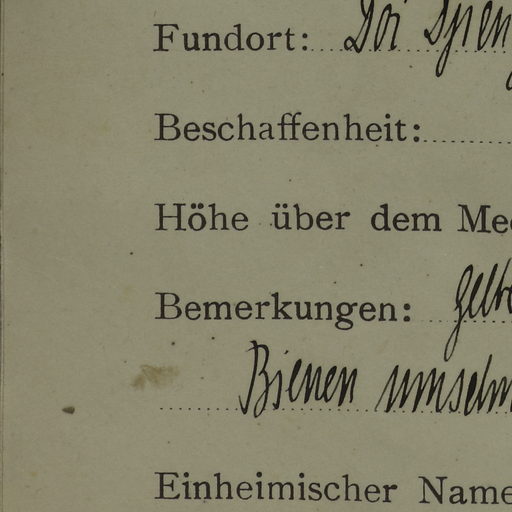 Fundort: Doi Spren
Beschaffenheit:
Höhe über dem Mee
Bemerkungen: gelb
Bienen umschw
Einheimischer Name